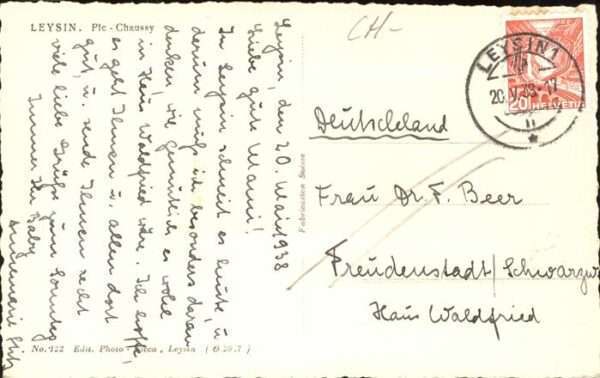 LEYSIN. Pic-Chaussy
CH-
LEYSIN 1
20. V. 38-17
20 HELVETIA
Leysin, den 20. Mai 1938
Liebe gute Mami!
In Leysin schneit es heute, u.
derum muss ich besonders daran
denken, wie gemütlich es wohl
im Haus Waldfried wäre. Ich hoffe,
es geht Ihnen u. allen dort
gut, u. sende Ihnen recht
viele liebe Grüsse zum Sonntag
Immer Ihr Baby
Annemarie
Fabrication Suisse
Deutschland
Frau Dr. F. Beer
Freudenstadt/Schwarzw
Haus Waldfried
No. 122 Edit. Photo- , Leysin